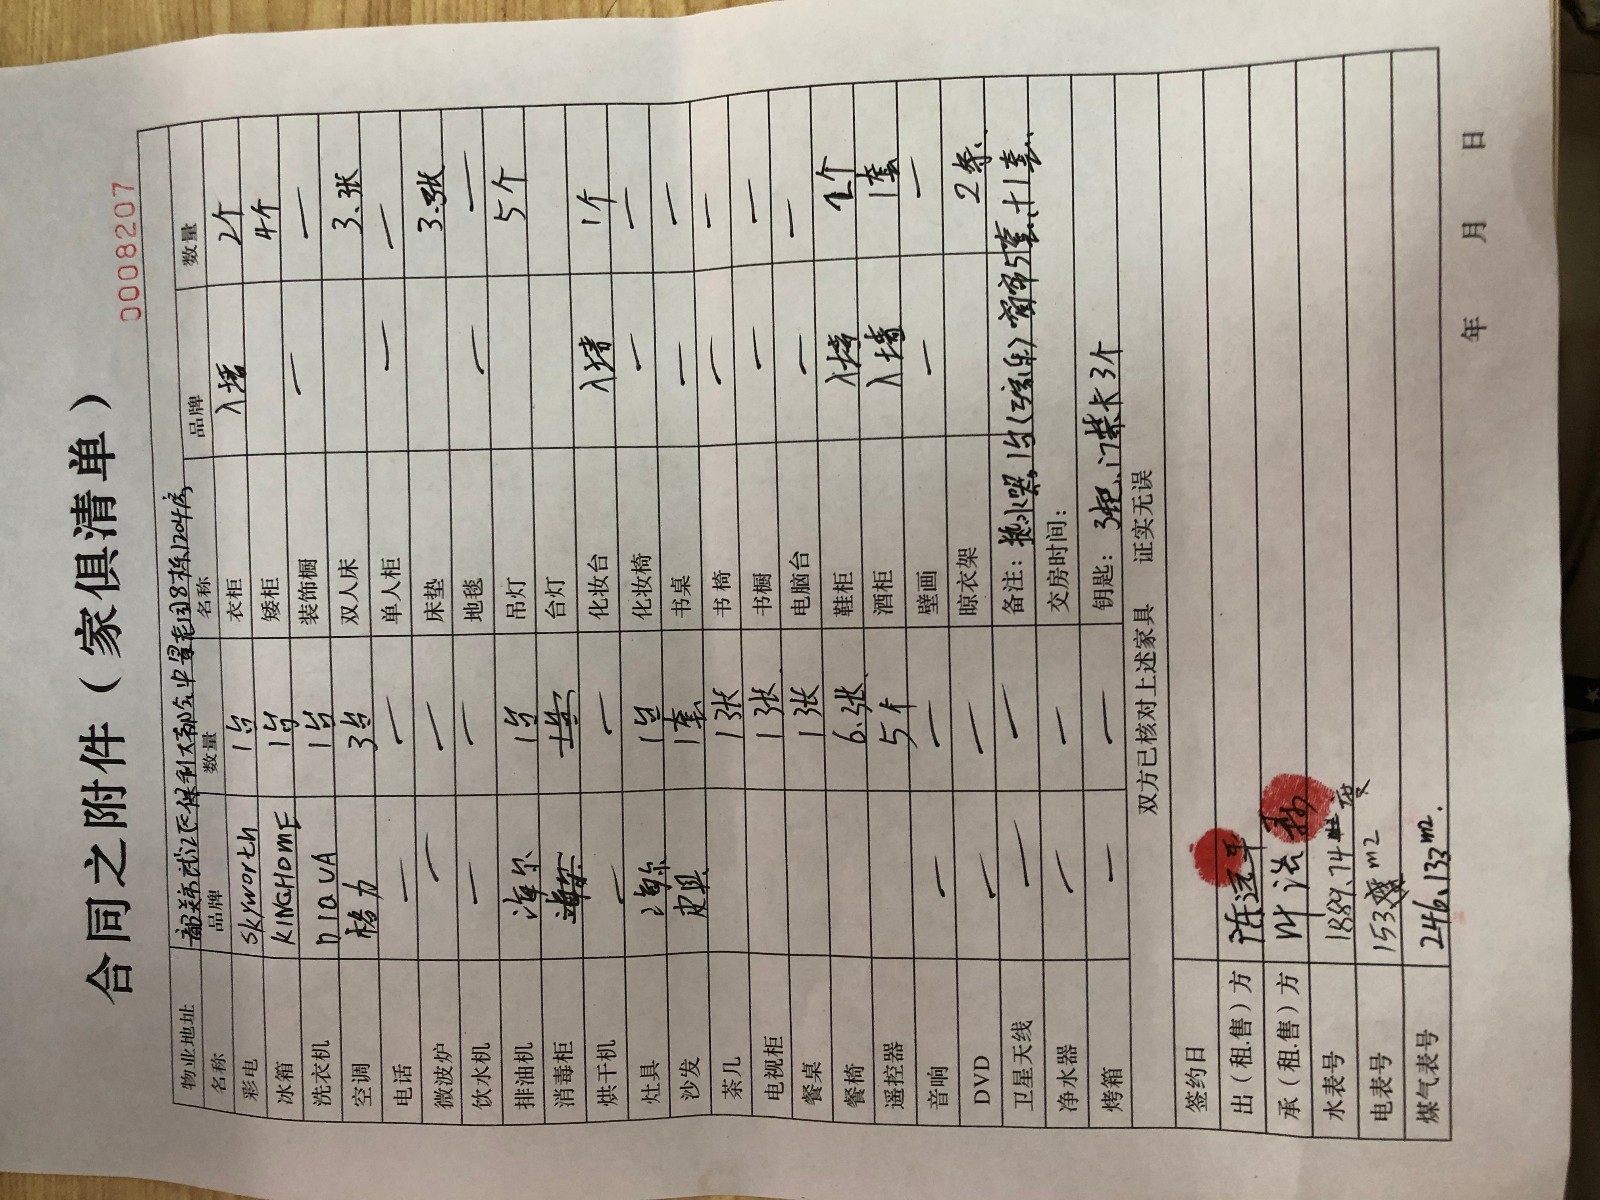 合同之附件（家俱清单）
0008207
物业地址 保利大都会中景花园8栋1204房
名称 品牌 数量 名称 品牌 数量
彩电 Skyworth 1台 衣柜 入墙 2个
冰箱 KINGHOME 1台 矮柜 4个
洗衣机 DIQUA 1台 装饰橱 — —
空调 格力 3台 双人床 3张
电话 — — 单人柜 — —
微波炉 — — 床垫 3张
饮水机 — — 地毯 — —
排油机 海尔 1台 吊灯 5个
消毒柜 台灯
烘干机 — — 化妆台 入墙 1个
灶具 海尔 1台 化妆椅 — —
沙发 皮具 1套 书桌 — —
茶几 1张 书椅 — —
电视柜 1张 书橱 — —
餐桌 1张 电脑台 — —
餐椅 6张 鞋柜 入墙 2个
遥控器 5个 酒柜 入墙 1套
音响 — — 壁画 — —
DVD — — 晾衣架 2条
卫星天线 — — 备注：热水器1台 窗帘5套+1套
净水器 — — 交房时间：
烤箱 — — 钥匙：3把、门禁卡3个
双方已核对上述家具 证实无误
签约日
出（租.售）方 陈远平
承（租.售）方 叶浩
水表号 1889.74 度
电表号 153 m2
煤气表号 246.133m2.
年 月 日